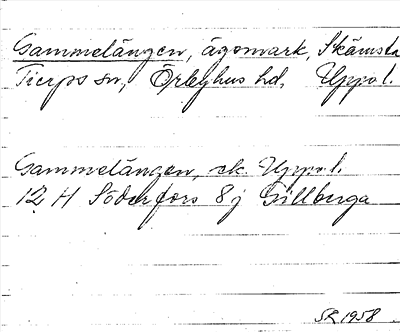 Gammelängen, ägomark, Skämsta
Tierps sn, Örbyhus hd, Uppl.
Gammelängen, ek. Uppl.
12 H Söderfors 8 j Gillberga
SR 1958